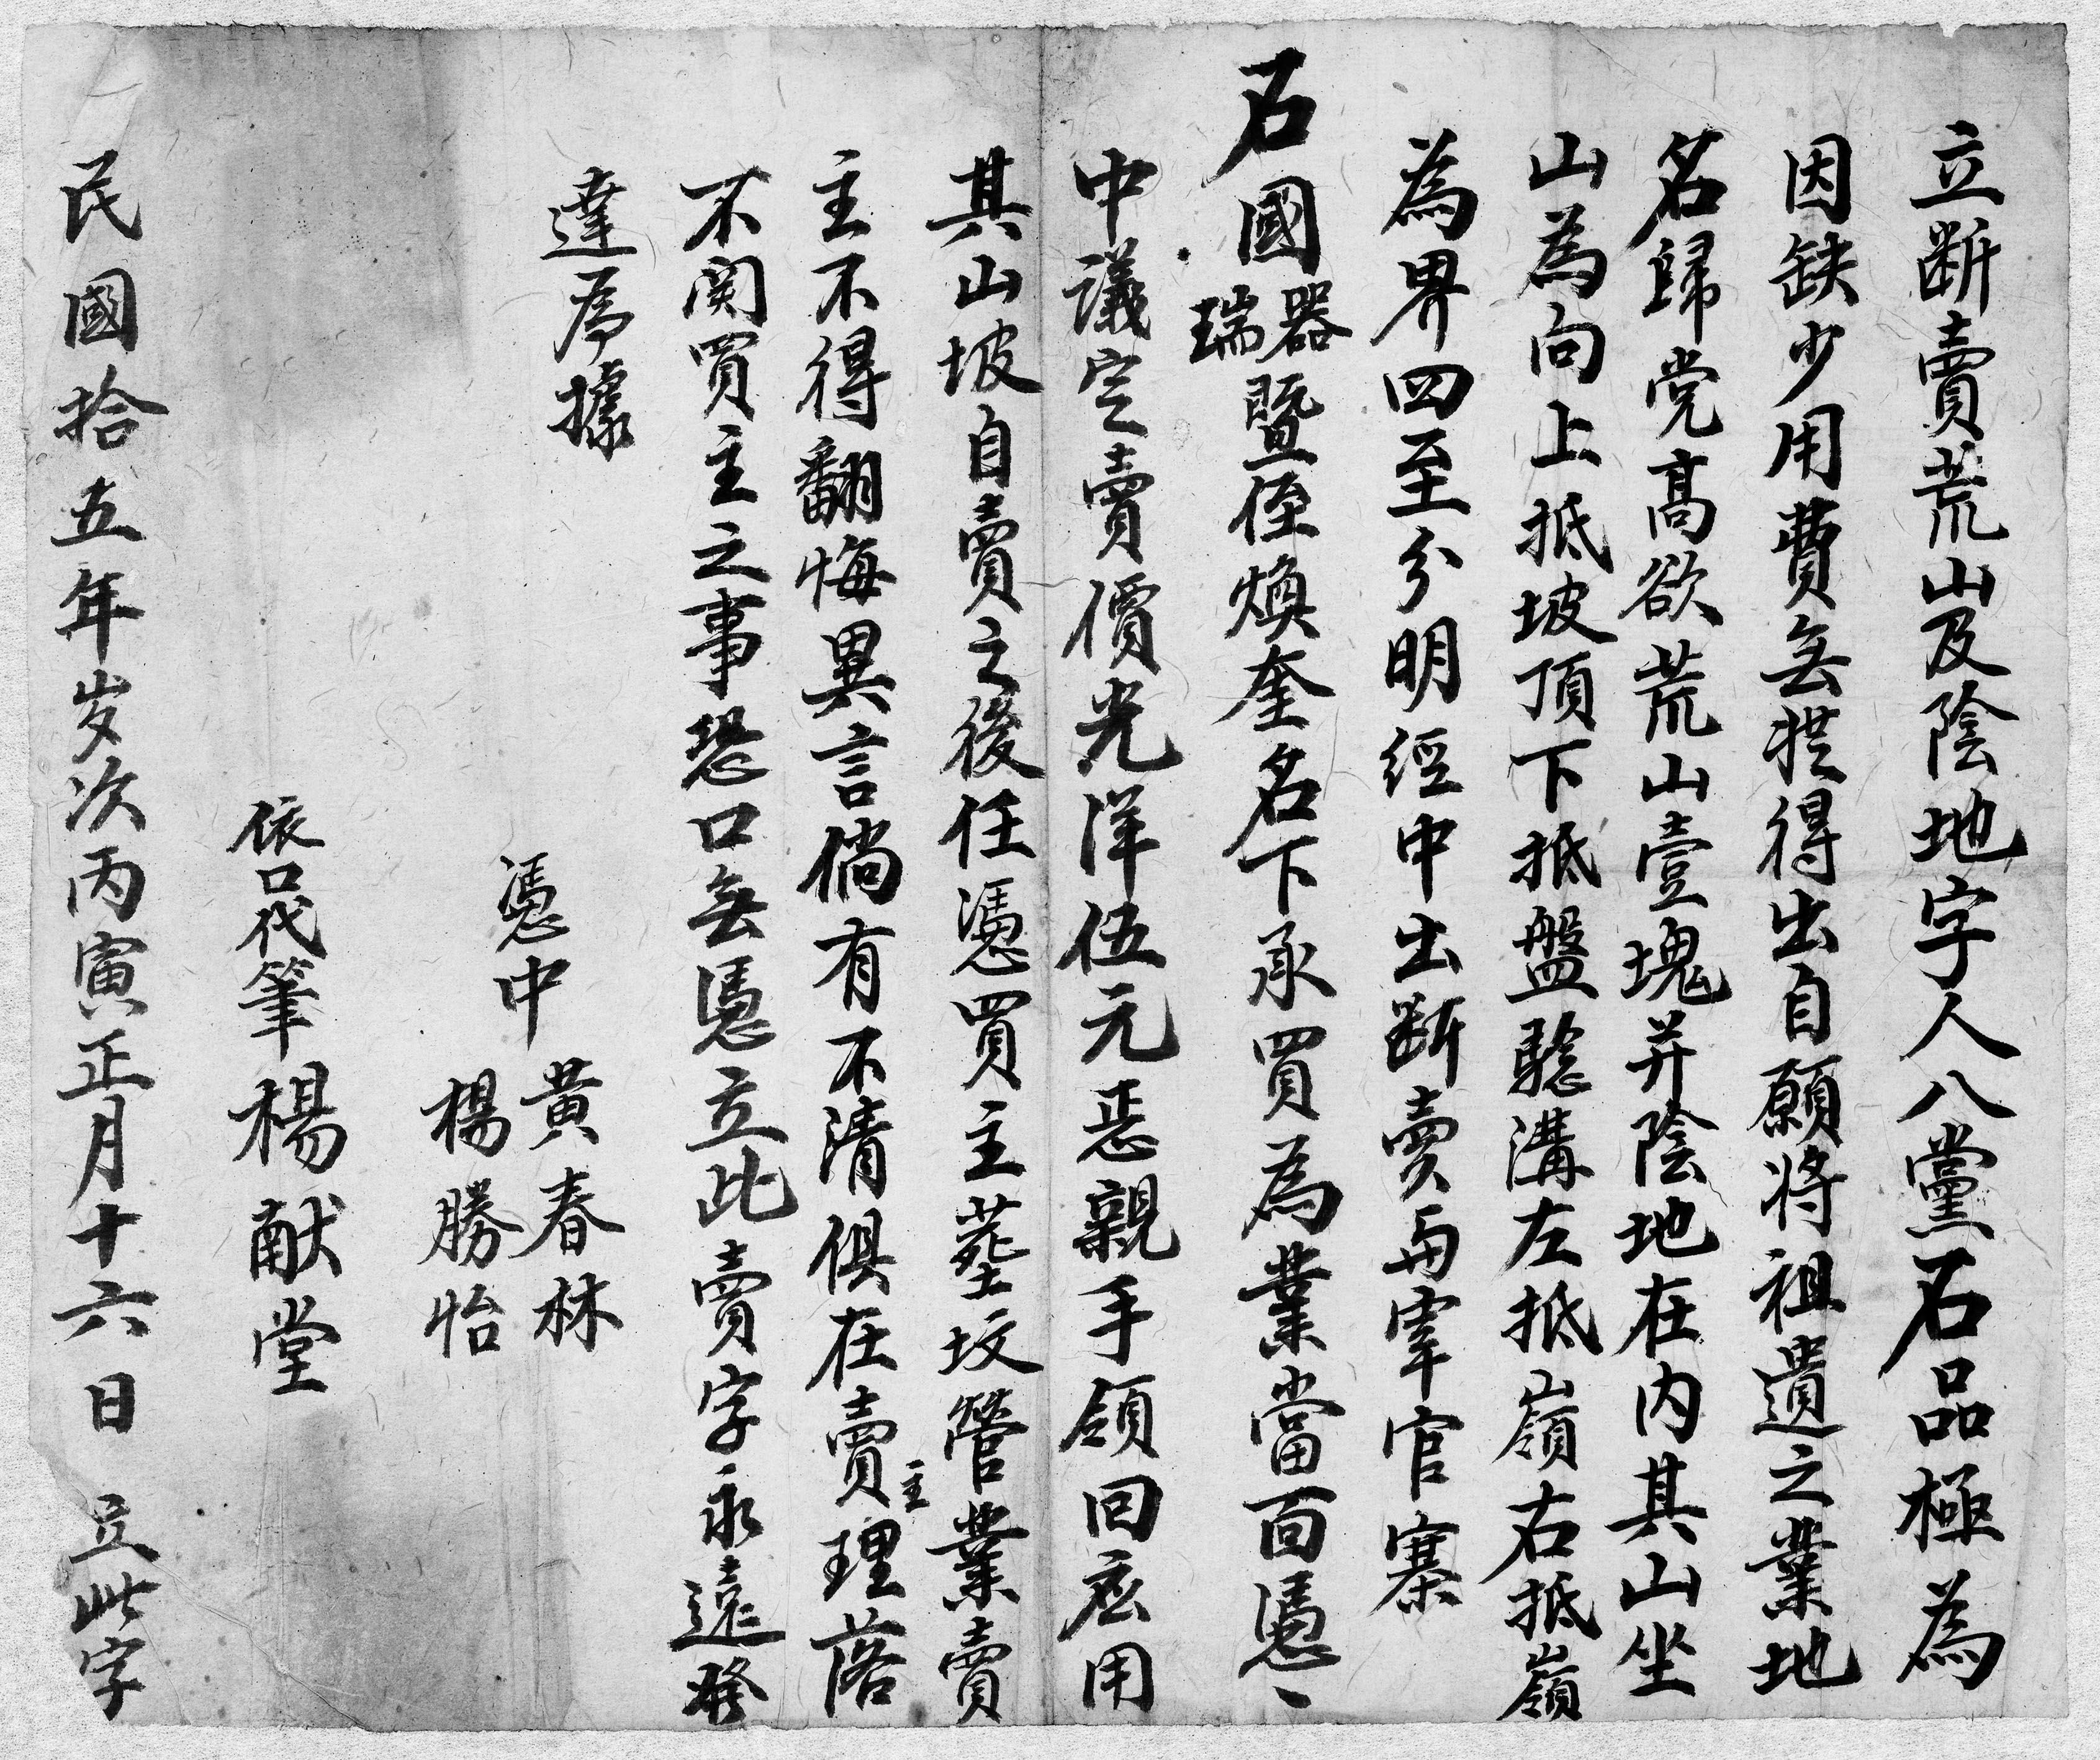 立断賣荒山及陰地字人八黨石品極為
因缺少用費無𢪛得出自願將祖遺之業地
名歸党髙欲荒山壹塊并陰地在内其山坐
山為向上抵坡頂下抵盤騐溝左抵嶺右抵嶺
為界四至分明經中出断賣与宰官寨
石國器瑞暨侄煥奎名下承買為業當面憑
中議定賣價光洋伍元正親手領回應用
其山坡自賣之後任憑買主塟坟管業賣
主不得翻悔異言倘有不清俱在賣主理落
不関買主之事恐口無憑立此賣字永遠發
達為據
憑中 黃春林 楊勝怡
依口代筆楊献堂
民國拾五年岁次丙寅正月十六日 立此字